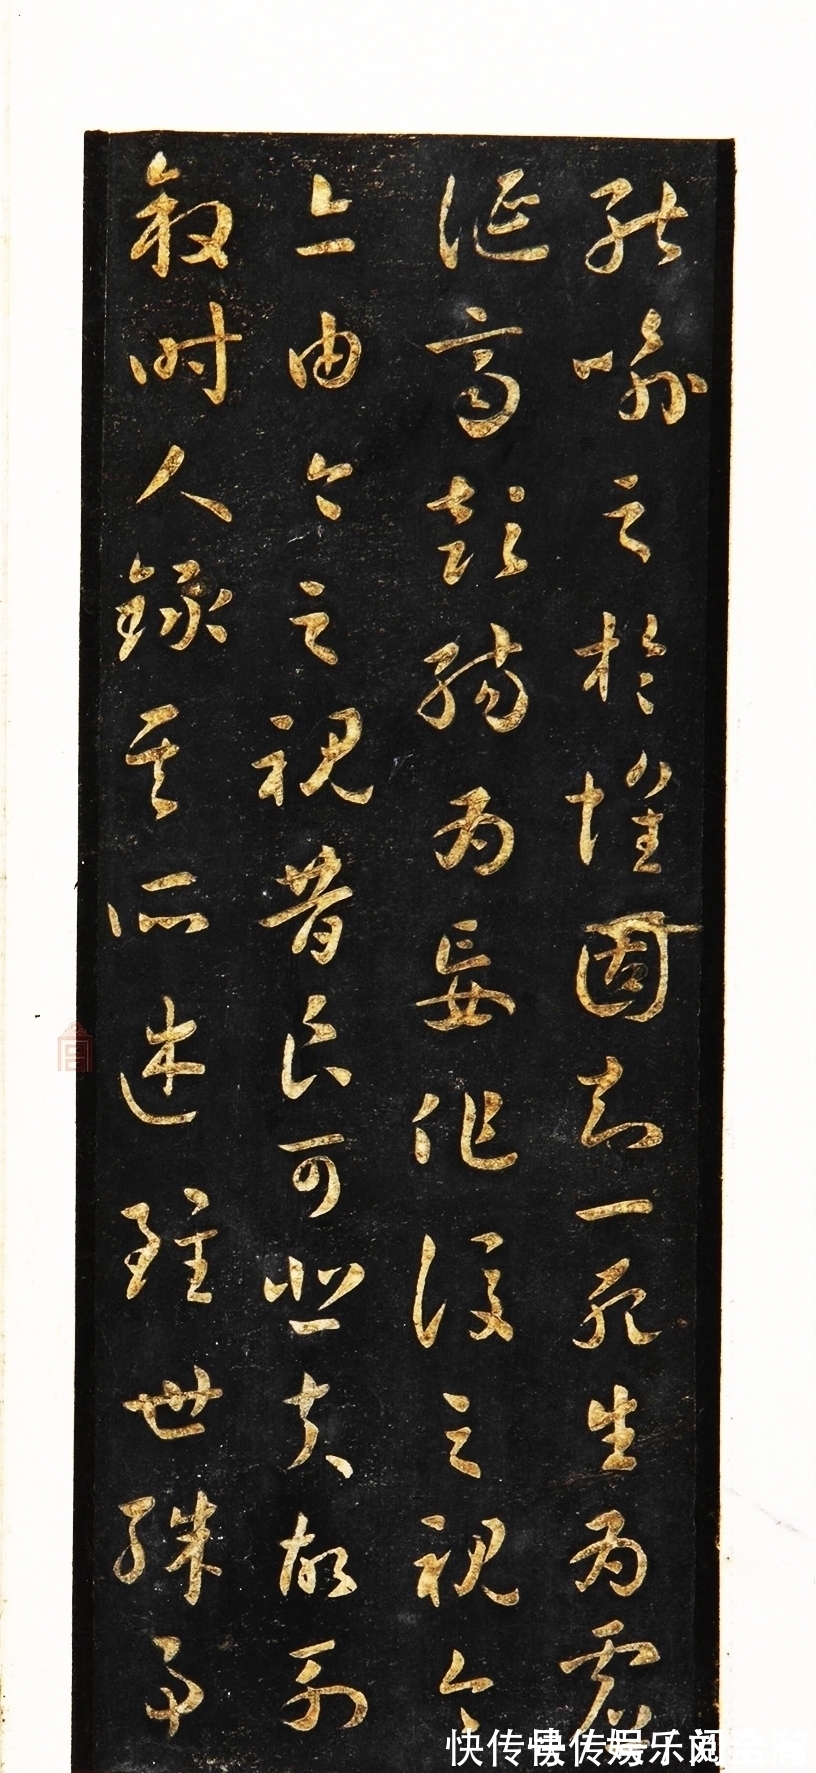 能喻之於懷固知一死生為虛
誕齊彭殤為妄作後之視今
亦由今之視昔良可悲夫故列
敘時人錄其所述雖世殊事
快传